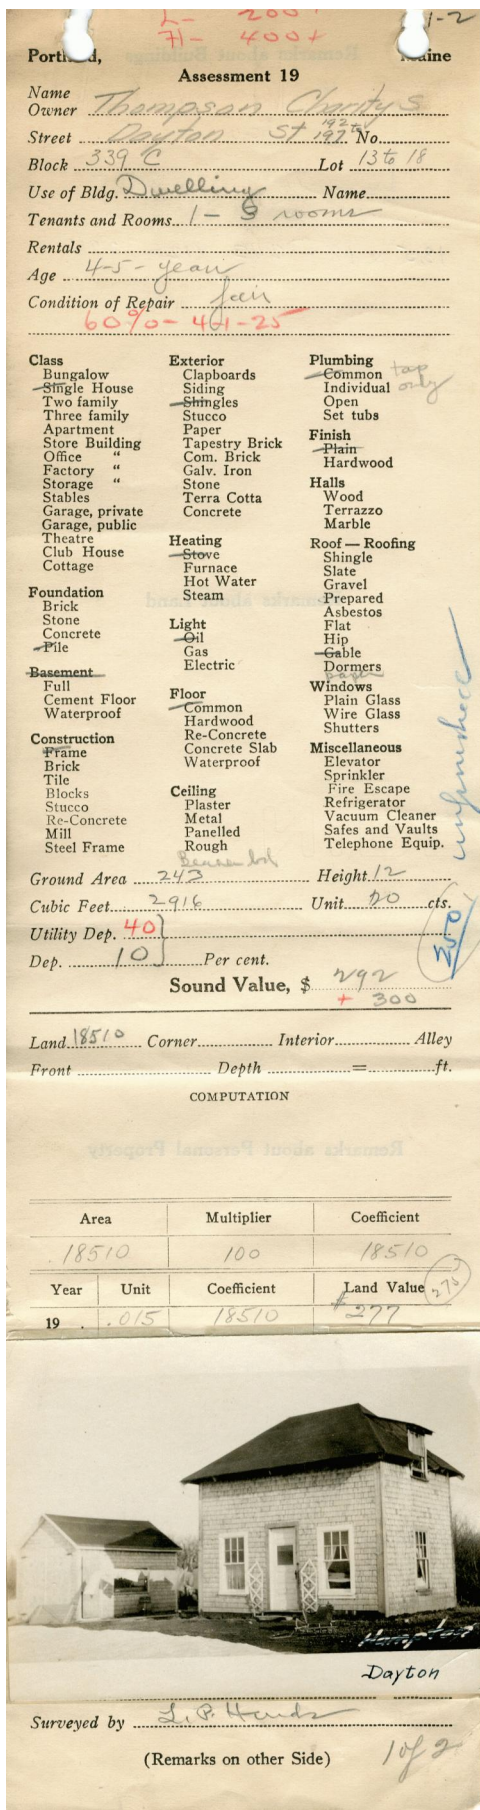 L - 200
H - 400 +
1-2
Portland, Maine
Assessment 19
Name
Owner Thompson Charity S
Street Dayton St 192 to 197 No.
Block 339 C Lot 13 to 18
Use of Bldg. Dwelling Name
Tenants and Rooms 1 - 3 rooms
Rentals
Age 4-5 - year
Condition of Repair fair
60% - 4-1-25
Class
Bungalow
Single House
Two family
Three family
Apartment
Store Building
Office "
Factory "
Storage "
Stables
Garage, private
Garage, public
Theatre
Club House
Cottage
Foundation
Brick
Stone
Concrete
Pile
Basement
Full
Cement Floor
Waterproof
Construction
Frame
Brick
Tile
Blocks
Stucco
Re-Concrete
Mill
Steel Frame
Exterior
Clapboards
Siding
Shingles
Stucco
Paper
Tapestry Brick
Com. Brick
Galv. Iron
Stone
Terra Cotta
Concrete
Heating
Stove
Furnace
Hot Water
Steam
Light
Oil
Gas
Electric
Floor
Common
Hardwood
Re-Concrete
Concrete Slab
Waterproof
Ceiling
Plaster
Metal
Panelled
Rough
Beaver bd
Plumbing
Common tap
Individual only
Open
Set tubs
Finish
Plain
Hardwood
Halls
Wood
Terrazzo
Marble
Roof — Roofing
Shingle
Slate
Gravel
Prepared
Asbestos
Flat
Hip
Gable
Dormers
paper
Windows
Plain Glass
Wire Glass
Shutters
Miscellaneous
Elevator
Sprinkler
Fire Escape
Refrigerator
Vacuum Cleaner
Safes and Vaults
Telephone Equip.
unfinished
250
Ground Area 243 Height 12
Cubic Feet 2916 Unit 20 cts.
Utility Dep. 40
Dep. 10 Per cent.
Sound Value, $ 292
+ 300
Land 18510 Corner Interior Alley
Front Depth = ft.
COMPUTATION
Area Multiplier Coefficient
18510 100 18510
Year Unit Coefficient Land Value 270
19 .015 18510 $277
Hampton
Dayton
Surveyed by
(Remarks on other Side)
1 of 2